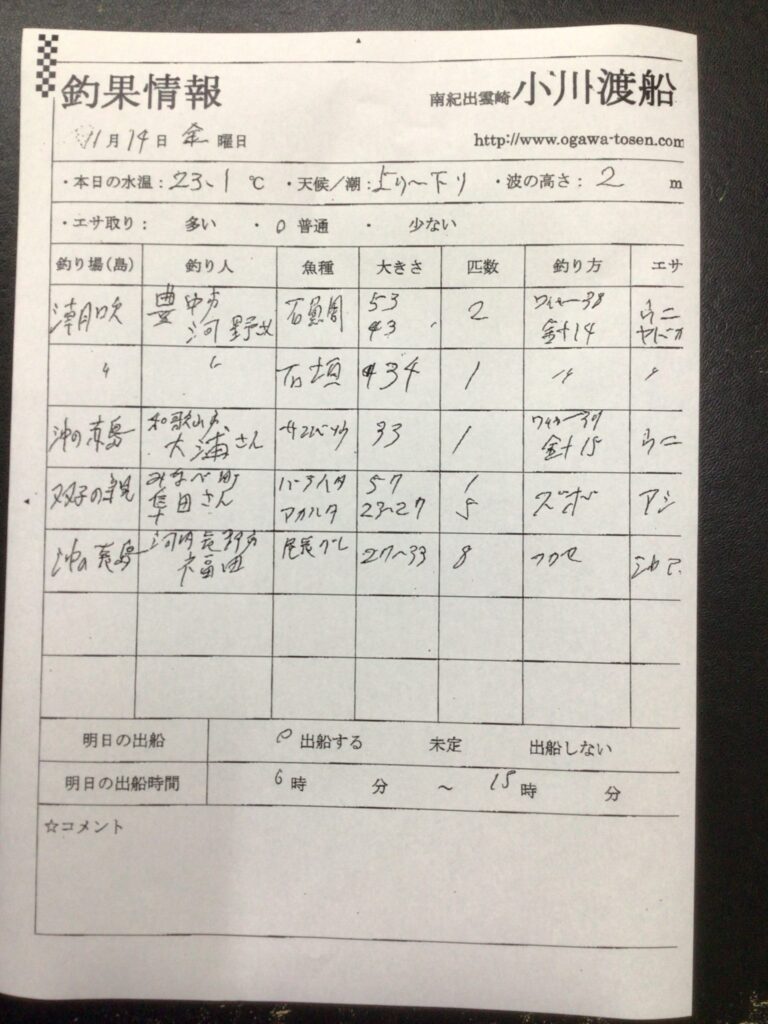 釣果情報
南紀出雲崎 小川渡船
11月14日 金曜日
http://www.ogawa-tosen.com
・本日の水温：23.1 ℃ ・天候／潮：上り〜下り ・波の高さ：2 m
・エサ取り： 多い ・ 0 普通 ・ 少ない
釣り場（島） 釣り人 魚種 大きさ 匹数 釣り方 エサ
潮吹 豊中市 河野 石鯛 53 43 2 ワイヤー38 針14 ウニ
〃 〃 石垣 434 1 〃 〃
沖の 島 和歌山市 大浦さん 33 1 ワイヤー39 針15 ウニ
双子の親 みなべ町 田さん アカハタ 57 23〜27 1 5 ズボ アジ
沖の 島 河内長野市 福田 尾長グレ 27〜33 8 フカセ
明日の出船 0 出船する 未定 出船しない
明日の出船時間 6時 分 〜 15時 分
☆コメント